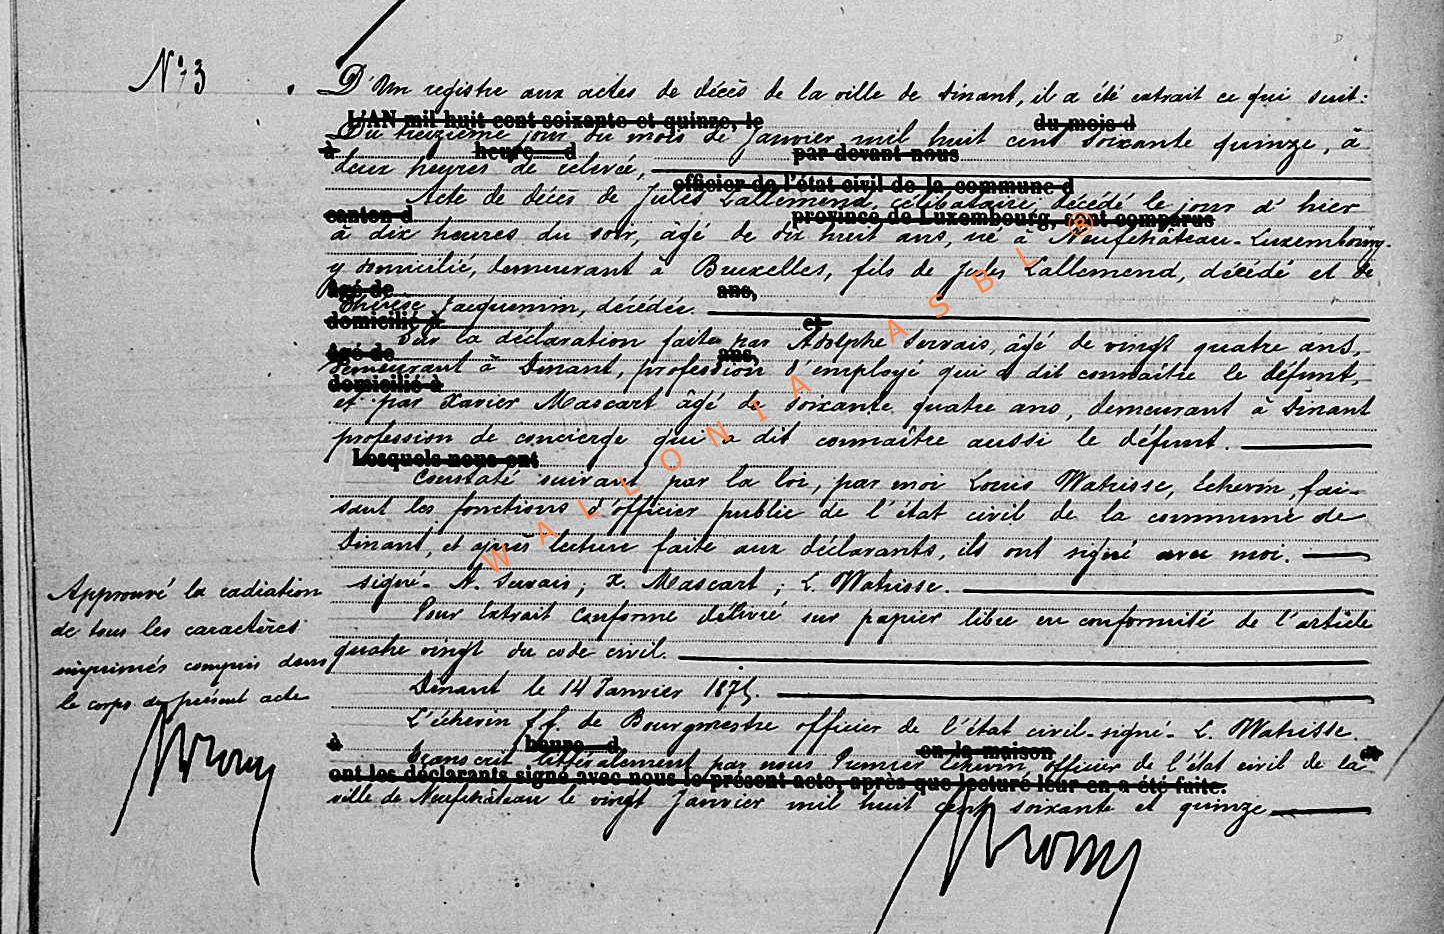 N° 3
D'Un registre aux actes de décès de la ville de Dinant, il a été extrait ce qui suit:
L'AN mil huit cent soixante et quinze, le du mois d
Du treizième jour du mois de Janvier mil huit cent soixante quinze, à
à heure d par devant nous
deux heures de relevée,
officier de l'état civil de la commune d
Acte de décès de Jules Lallemend, célibataire, décédé le jour d'hier
canton d province de Luxembourg, sont comparus
à dix heures du soir, âgé de dix huit ans, né à Neufchâteau-Luxembourg-
y domicilié, demeurant à Bruxelles, fils de Jules Lallemend, décédé et de
âgé de ans,
Thérèse Jacquemin, décédée.
domicilié à et
Sur la déclaration faite par Adolphe Servais, âgé de vingt quatre ans,
âgé de ans,
demeurant à Dinant, profession d'employé qui a dit connaître le défunt,
domicilié à
et par Xavier Mascart âgé de soixante quatre ans, demeurant à Dinant
profession de concierge qui a dit connaître aussi le défunt.
Lesquels nous ont
Constaté suivant par la loi, par moi Louis Watrisse, Echevin, fai-
sant les fonctions d'officier public de l'état civil de la commune de
Dinant, et après lecture faite aux déclarants, ils ont signé avec moi.
signé- A. Servais; X. Mascart; L. Watrisse.
Pour Extrait Conforme délivré sur papier libre en conformité de l'article
quatre vingt du code civil.
Dinant le 14 Janvier 1875.
L'échevin ff. de Bourgmestre officier de l'état civil-signé- L. Watrisse.
à heure d en la maison et
Transcrit littéralement par nous Premier Echevin officier de l'état civil de la
ont les déclarants signé avec nous le présent acte, après que lecture leur en a été faite.
ville de Neufchâteau le vingt Janvier mil huit cent soixante et quinze
Approuvé la radiation
de tous les caractères
imprimés compris dans
le corps du présent acte
WALLONIA ASBL ®